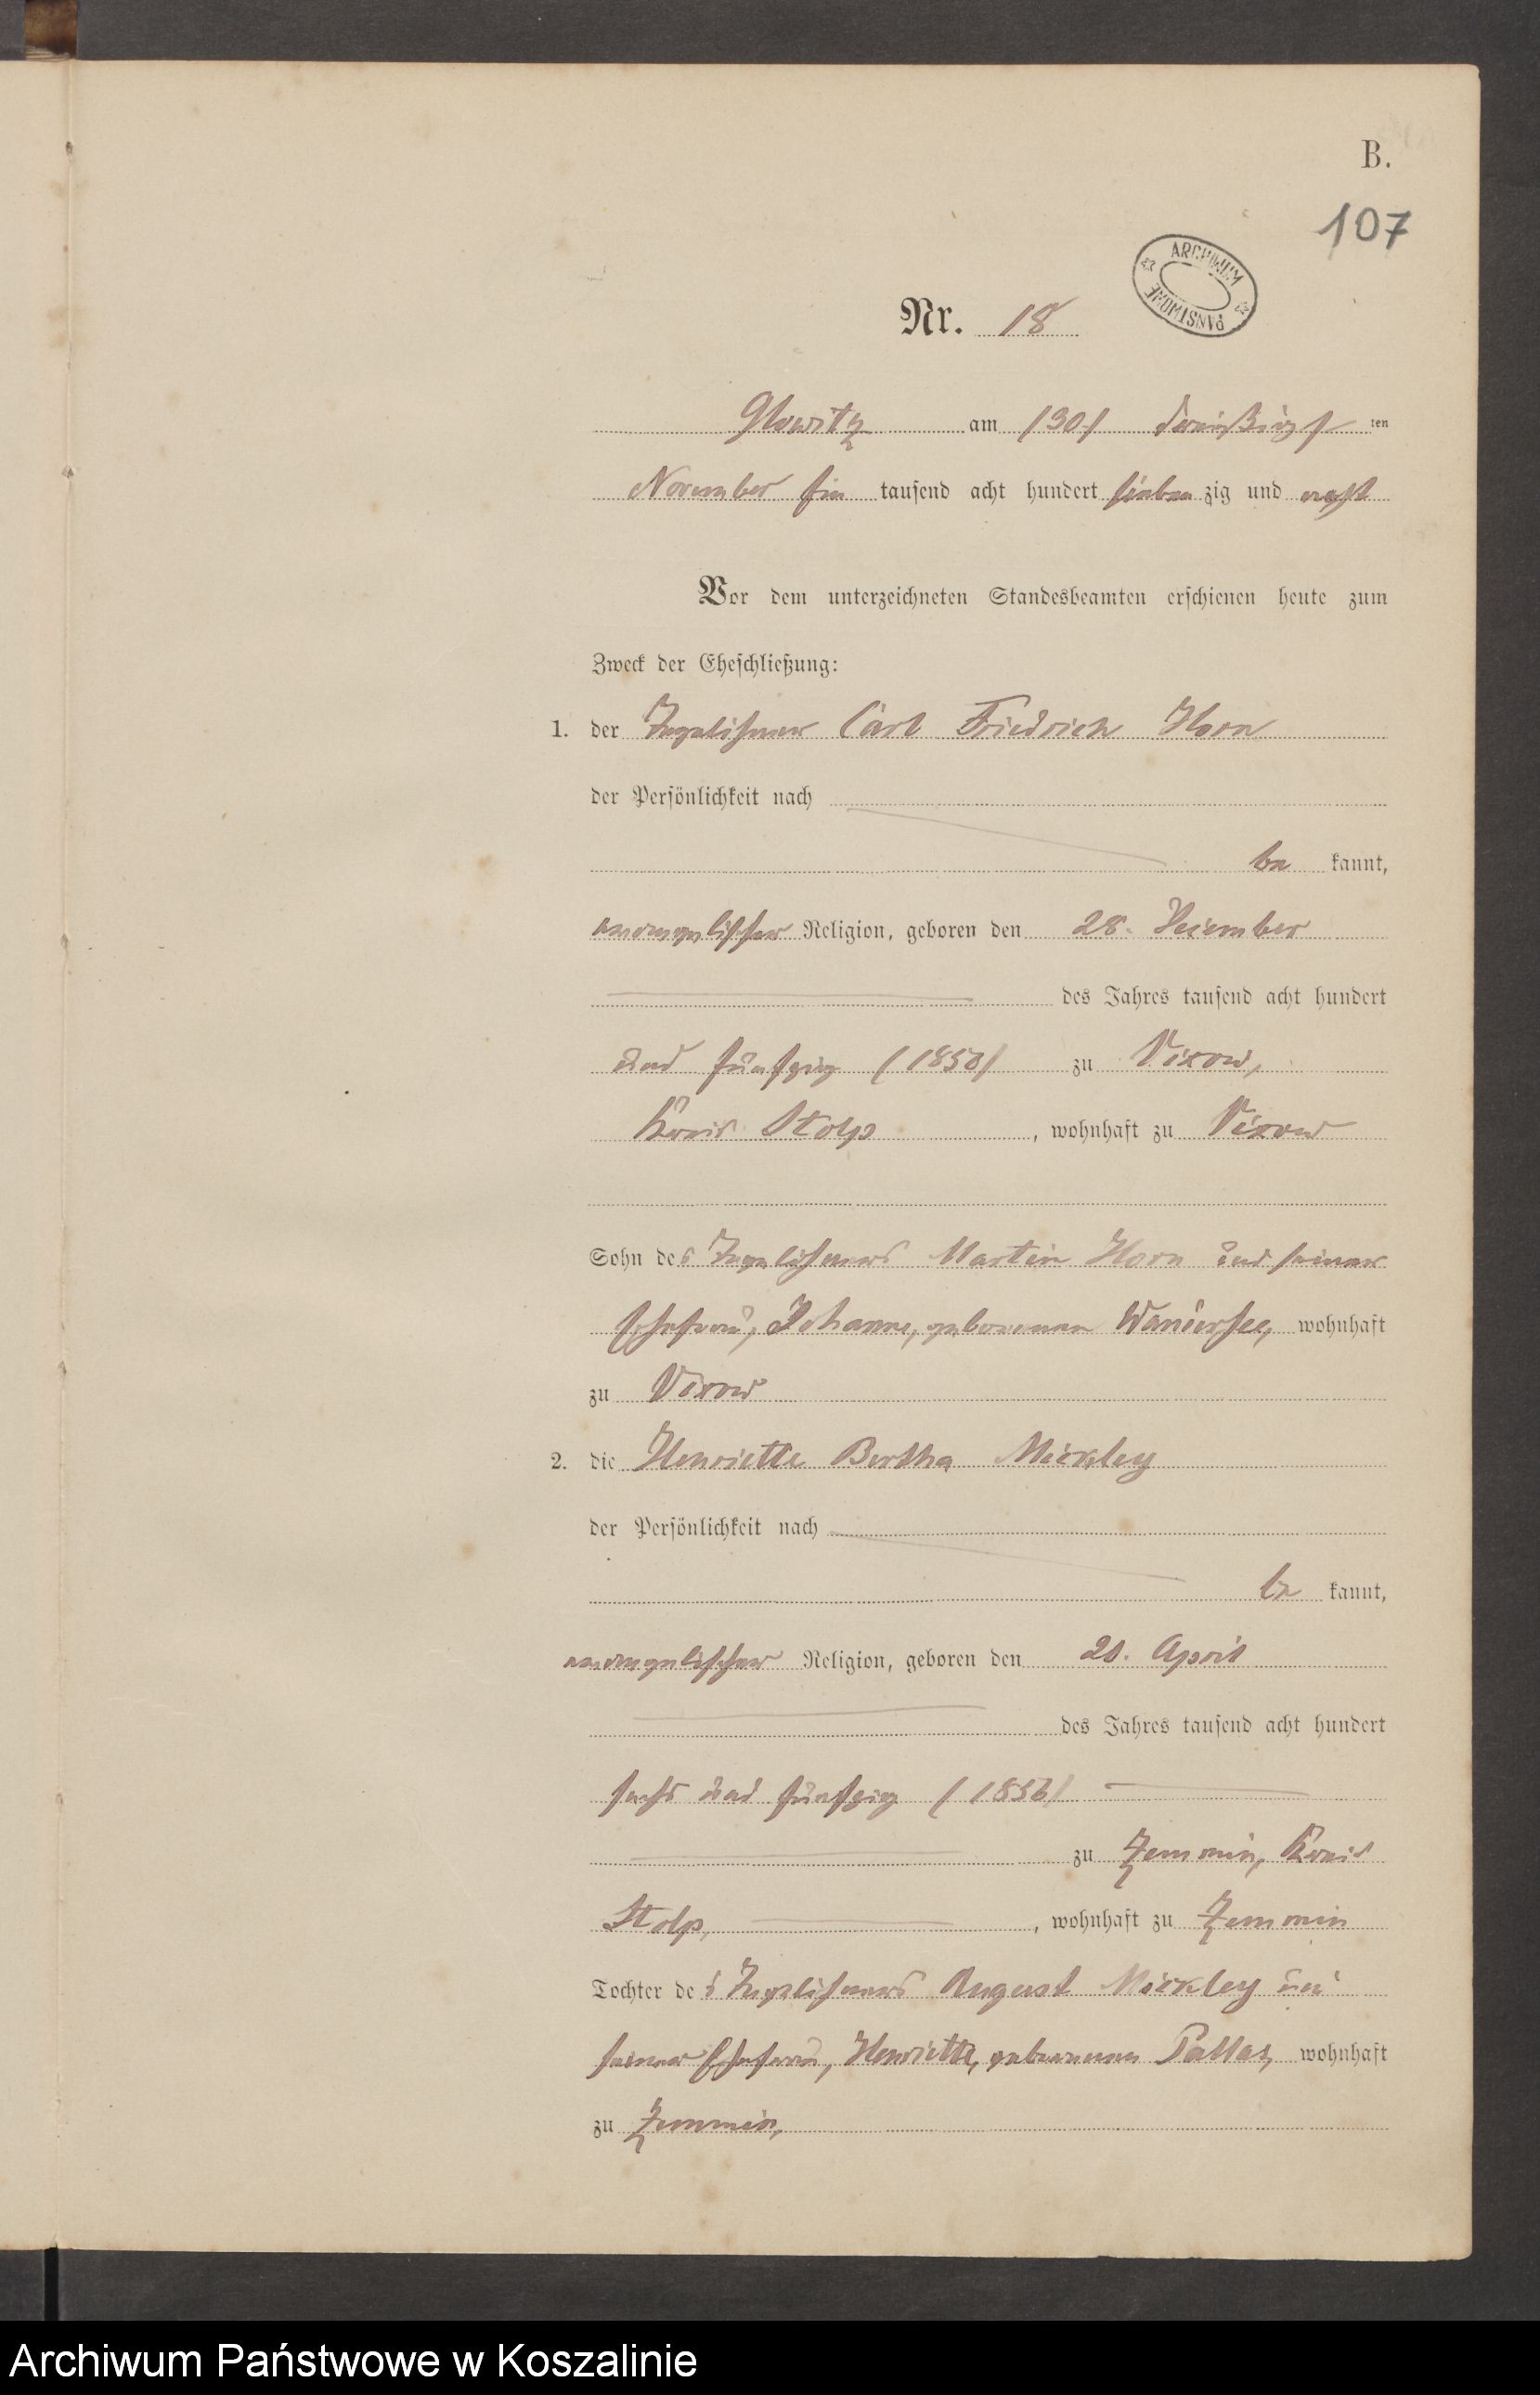 B.
107
ARCHIWUM PAŃSTWOWE
Nr. 18
Glowitz am /30./ dreißigsten
November ein tausend acht hundert siebenzig und acht
Vor dem unterzeichneten Standesbeamten erschienen heute zum
Zweck der Eheschließung:
1. der Tagelöhner Carl Friedrich Horn
der Persönlichkeit nach
bekannt,
evangelischer Religion, geboren den 28. Dezember
des Jahres tausend acht hundert
und fünfzig (1850) zu Vixow,
Kreis Stolp, wohnhaft zu Vixow
Sohn des Tagelöhners Martin Horn und seiner
Ehefrau, Johanne, geborenen wohnhaft
zu Vixow
2. die Henriette Bertha Mickley
der Persönlichkeit nach
bekannt,
evangelischer Religion, geboren den April
des Jahres tausend acht hundert
sechs und fünfzig (1856)
zu Zemmin, Kreis
Stolp, wohnhaft zu Zemmin
Tochter des Tagelöhners August Mickley und
seiner Ehefrau, Henriette, geborenen Pallas, wohnhaft
zu Zemmin,
Archiwum Państwowe w Koszalinie